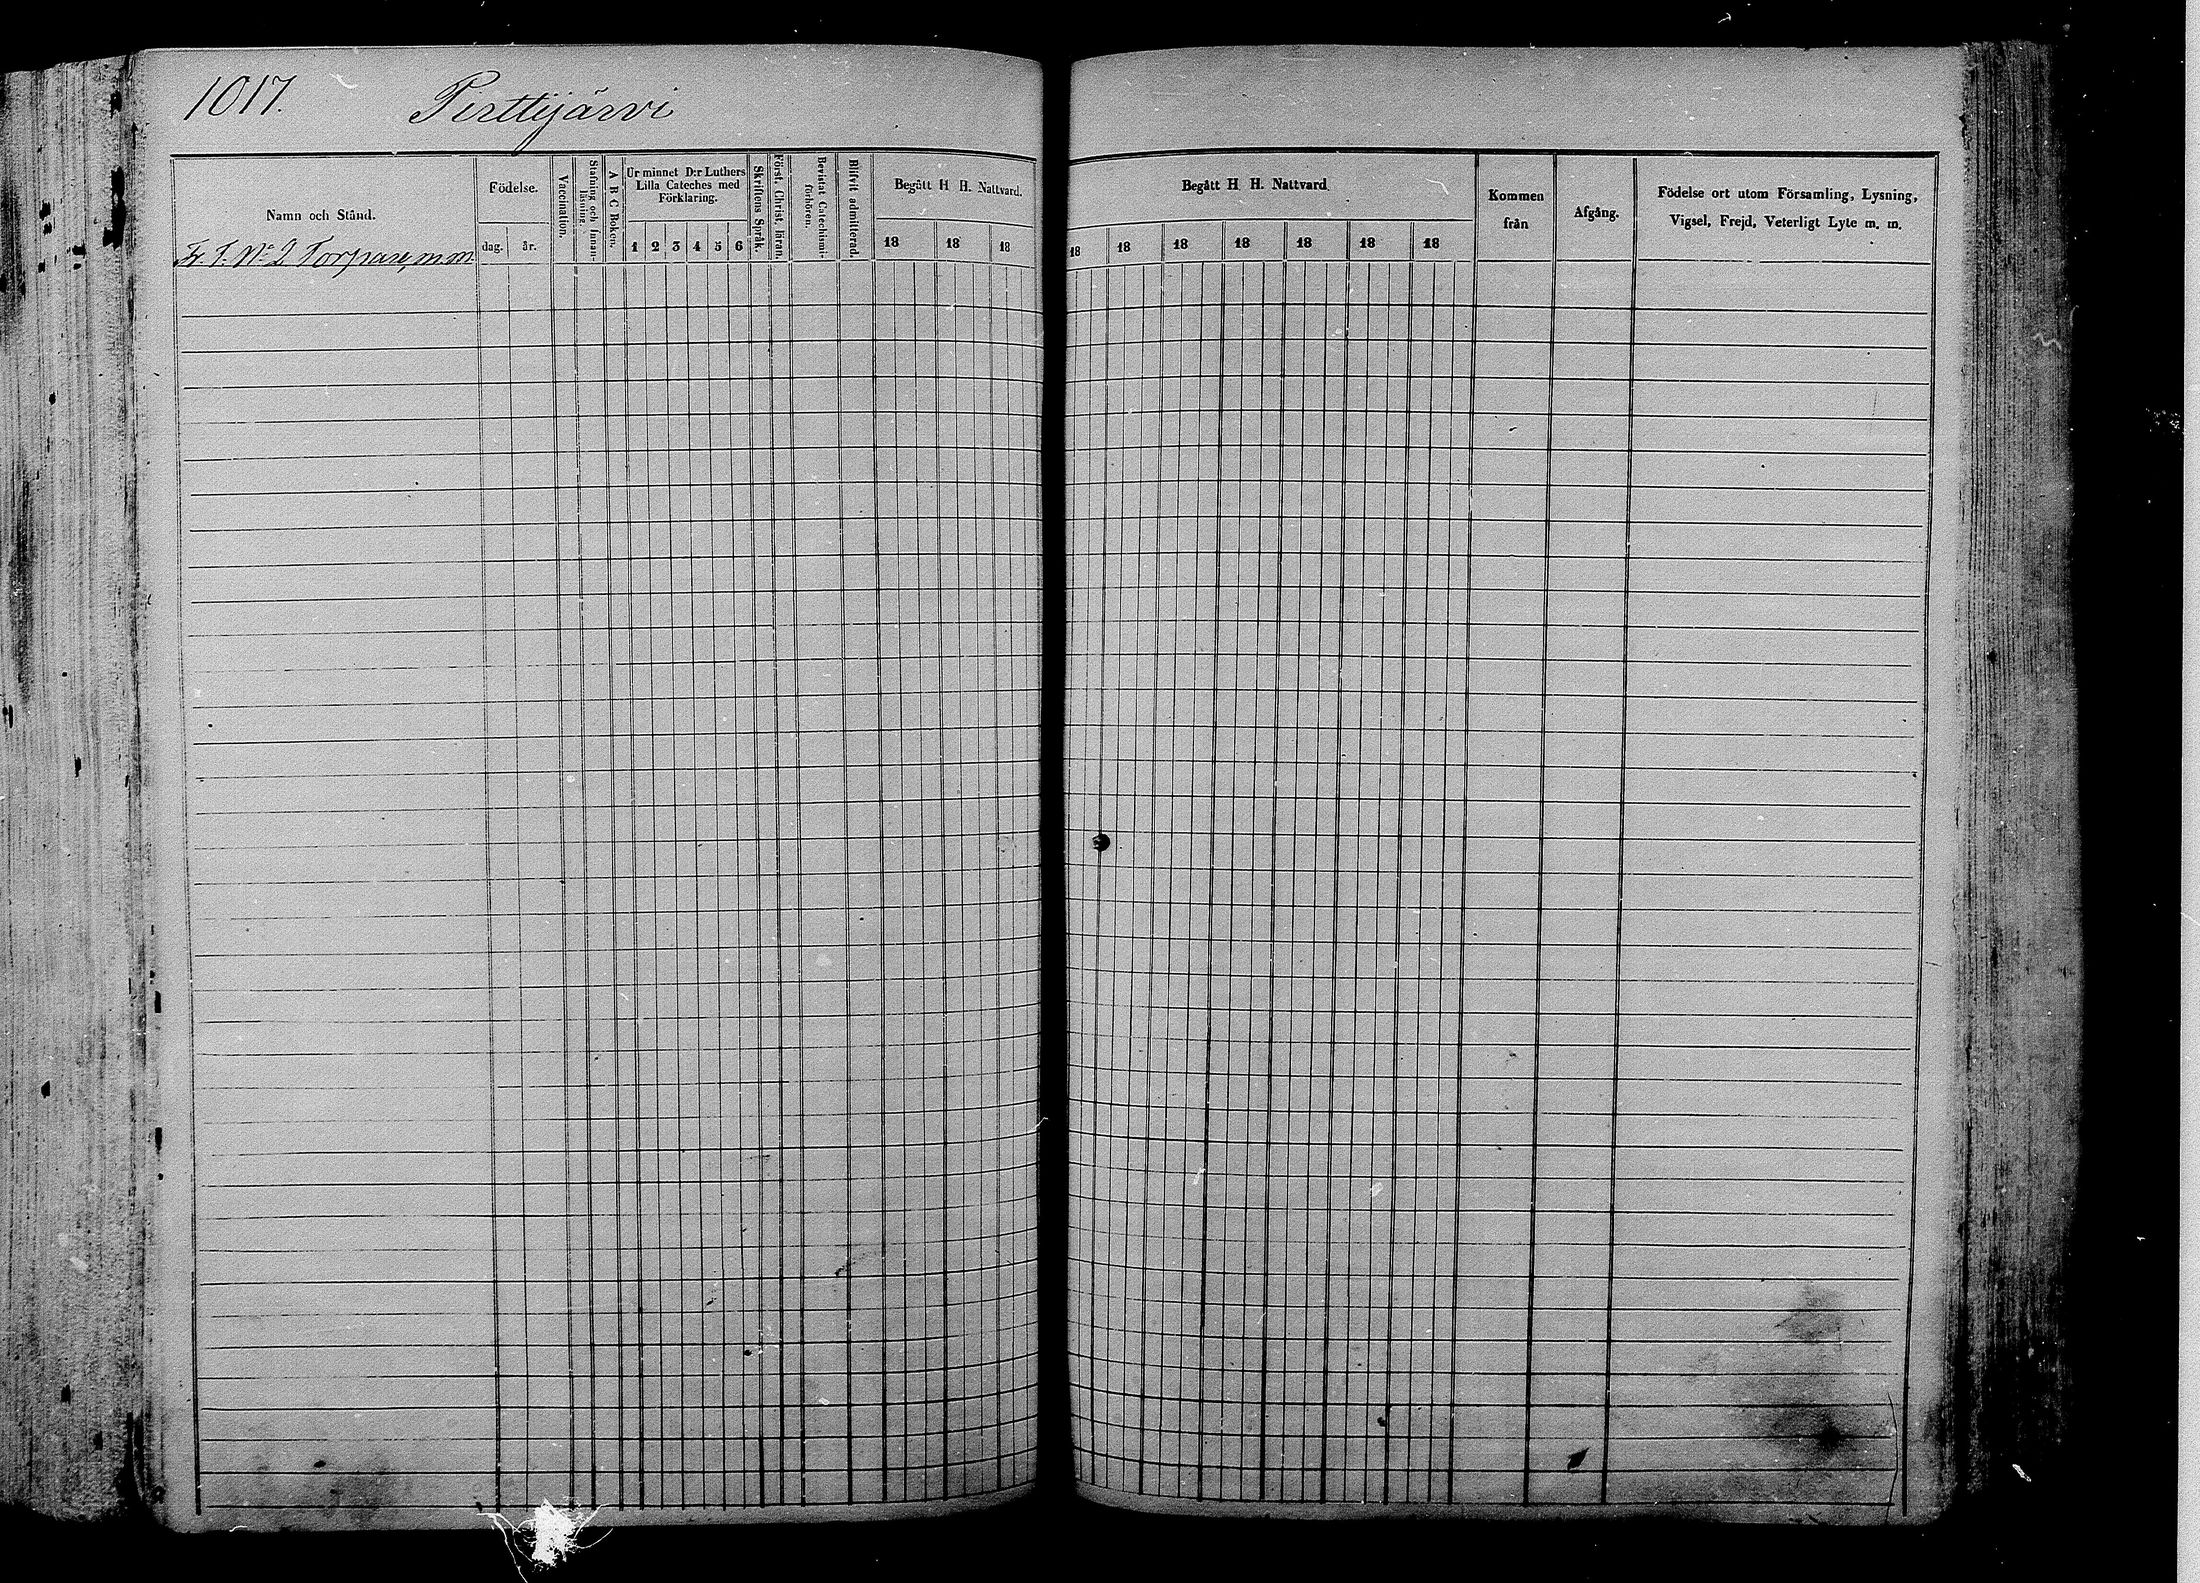 1017. Perttijärvi
Namn och Stånd.
Fr. T. No 2 Torpare, m.m.
Födelse.
dag. år.
Vaccination.
Stafning och Innan-
läsning.
A B C Boken.
Ur minnet D:r Luthers
Lilla Cateches med
Förklaring.
1 2 3 4 5 6
Skriftens Språk.
Först. Christ. läran.
Bevistat Catechismi-
förhören.
Blifvit admitterad.
Begått H H. Nattvard.
18 18 18
Begått H H. Nattvard
18 18 18 18 18 18 18
Kommen
från
Afgång.
Födelse ort utom Församling, Lysning,
Vigsel, Frejd, Veterligt Lyte m. m.